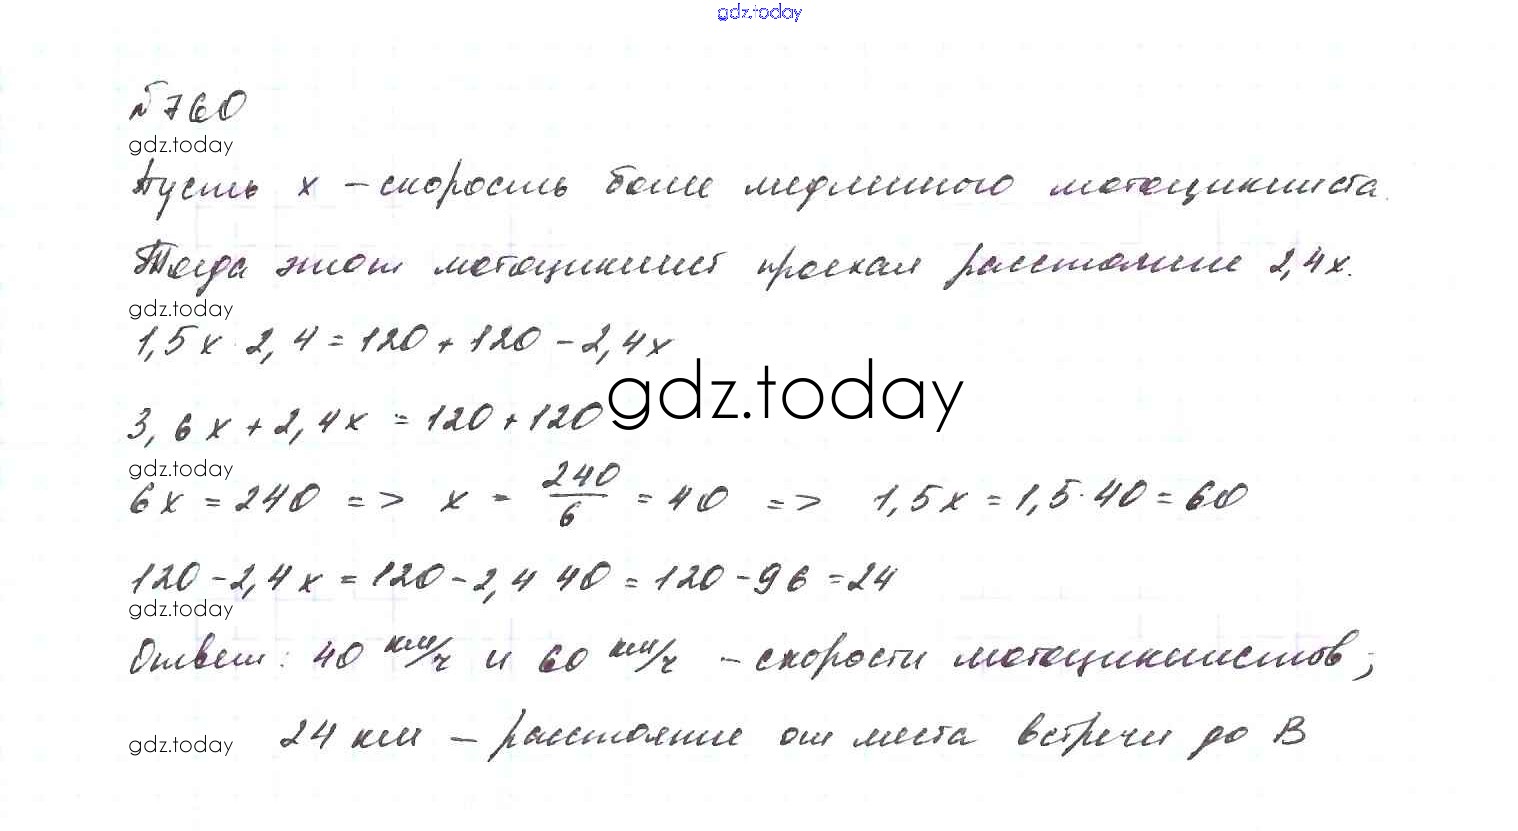 gdz.today
№760
gdz.today
Пусть x – скорость более медленного мотоциклиста.
Тогда этот мотоциклист проехал расстояние 2,4x.
gdz.today
1,5x · 2,4 = 120 + 120 - 2,4x
gdz.today
3,6x + 2,4x = 120 + 120
gdz.today
6x = 240 => x = 240/6 = 40 => 1,5x = 1,5·40 = 60
120 - 2,4x = 120 - 2,4 40 = 120 - 96 = 24
gdz.today
Ответ: 40 км/ч и 60 км/ч – скорости мотоциклистов;
gdz.today 24 км – расстояние от места встречи до В